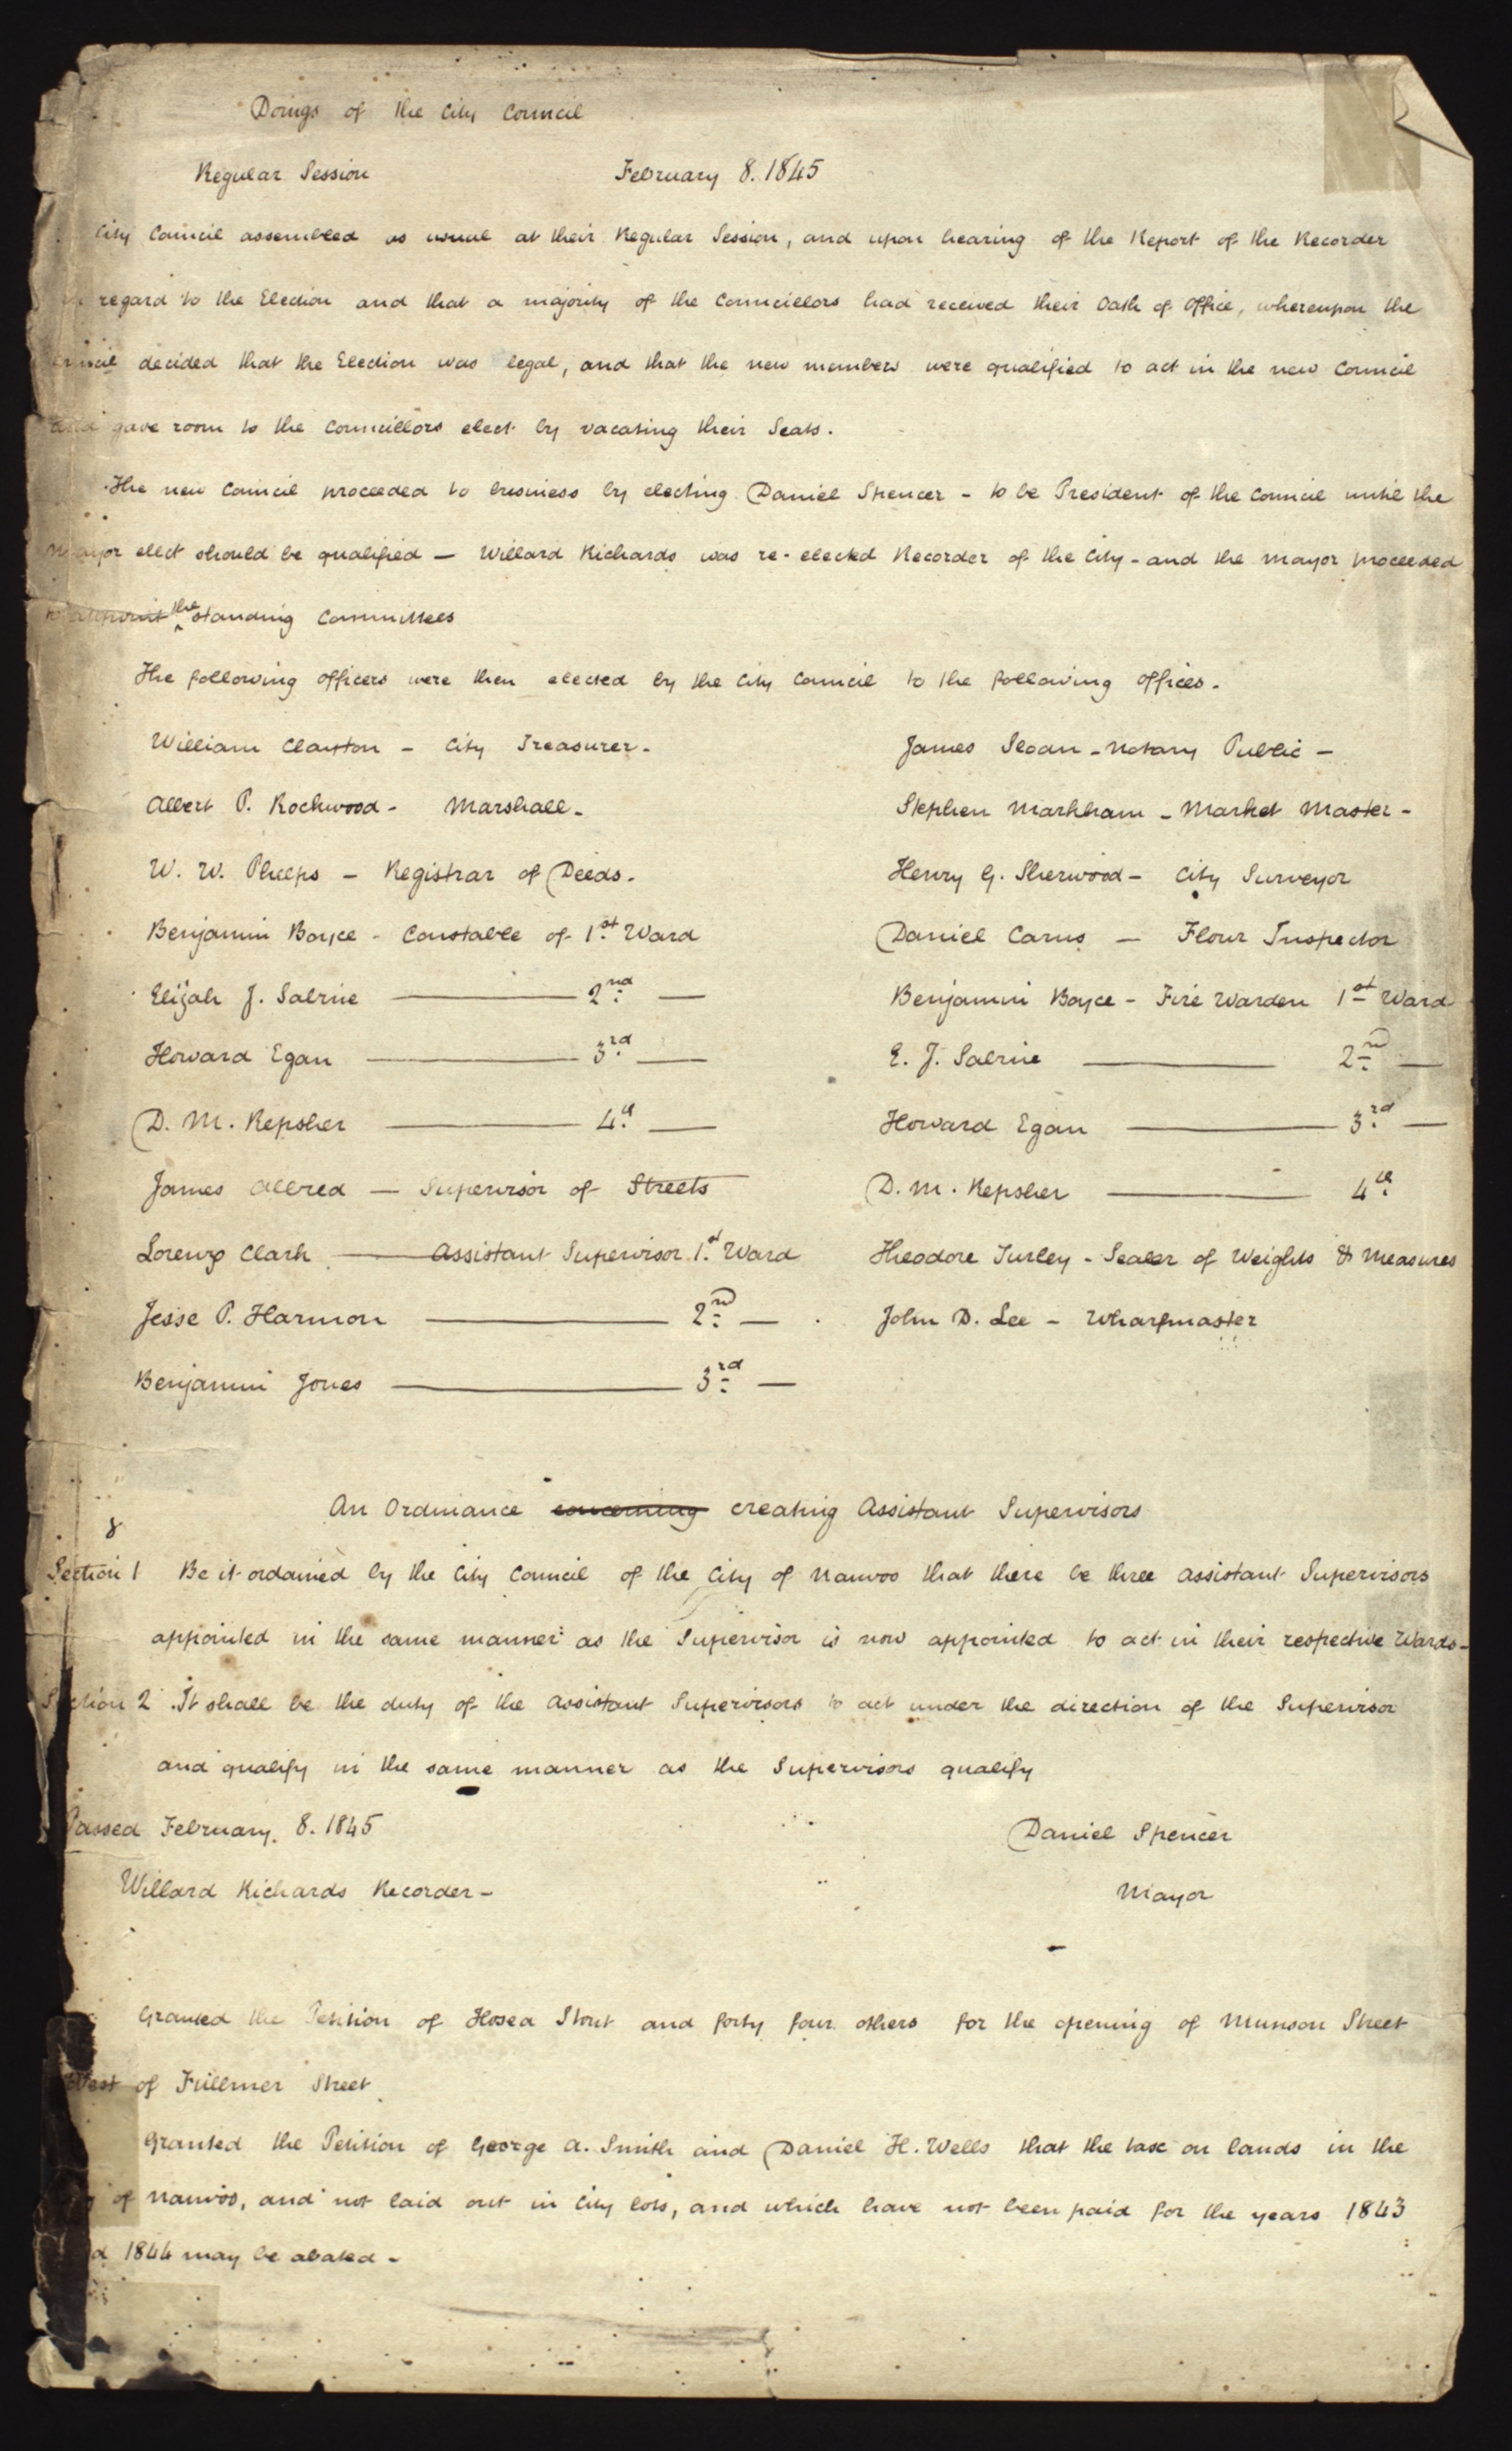 Doings of the City Council
Regular Session February 8. 1845
City Council assembled as usual at their Regular Session, and upon hearing of the Report of the Recorder
regard to the Election and that a majority of the Councillors had received their Oath of Office, whereupon the
Council decided that the Election was legal, and that the new members were qualified to act in the new Council
and gave room to the Councillors elect by vacating their Seats.
The new Council proceeded to business by electing Daniel Spencer - to be President of the Council until the
Mayor elect should be qualified — Willard Richards was re-elected Recorder of the City - and the Mayor proceeded
to appoint the standing Committees
The following officers were then elected by the City Council to the following offices.
William Clayton - City Treasurer - James Sloan - Notary Public -
Albert P. Rockwood - Marshall - Stephen Markham - Market Master -
W. W. Phelps - Registrar of Deeds - Henry G. Sherwood - City Surveyor
Benjamin Boyce - Constable of 1st Ward Daniel Carns — Flour Inspector
Elijah J. Sabrie — 2nd — Benjamin Boyce - Fire Warden 1st Ward
Howard Egan — 3rd — E. J. Sabrie — 2nd —
D. M. Repsher — 4th — Howard Egan — 3rd —
James Allred — Supervisor of Streets D. M. Repsher — 4th
Lorenzo Clark — Assistant Supervisor 1st Ward Theodore Turley - Sealer of Weights & Measures
Jesse P. Harmon — 2nd — John D. Lee - Wharfmaster
Benjamin Jones — 3rd —
An Ordinance concerning creating Assistant Supervisors
8
Section 1 Be it ordained by the City Council of the City of Nauvoo that there be three assistant Supervisors
appointed in the same manner as the Supervisor is now appointed to act in their respective Wards -
Section 2 It shall be the duty of the assistant Supervisors to act under the direction of the Supervisor
and qualify in the same manner as the Supervisors qualify
Passed February. 8. 1845 Daniel Spencer
Willard Richards Recorder - Mayor
Granted the Petition of Hosea Stout and forty four others for the opening of Munson Street
West of Fullmer Street
Granted the Petition of George A. Smith and Daniel H. Wells that the tax on lands in the
of Nauvoo, and not laid out in City lots, and which have not been paid for the years 1843
1844 may be abated -